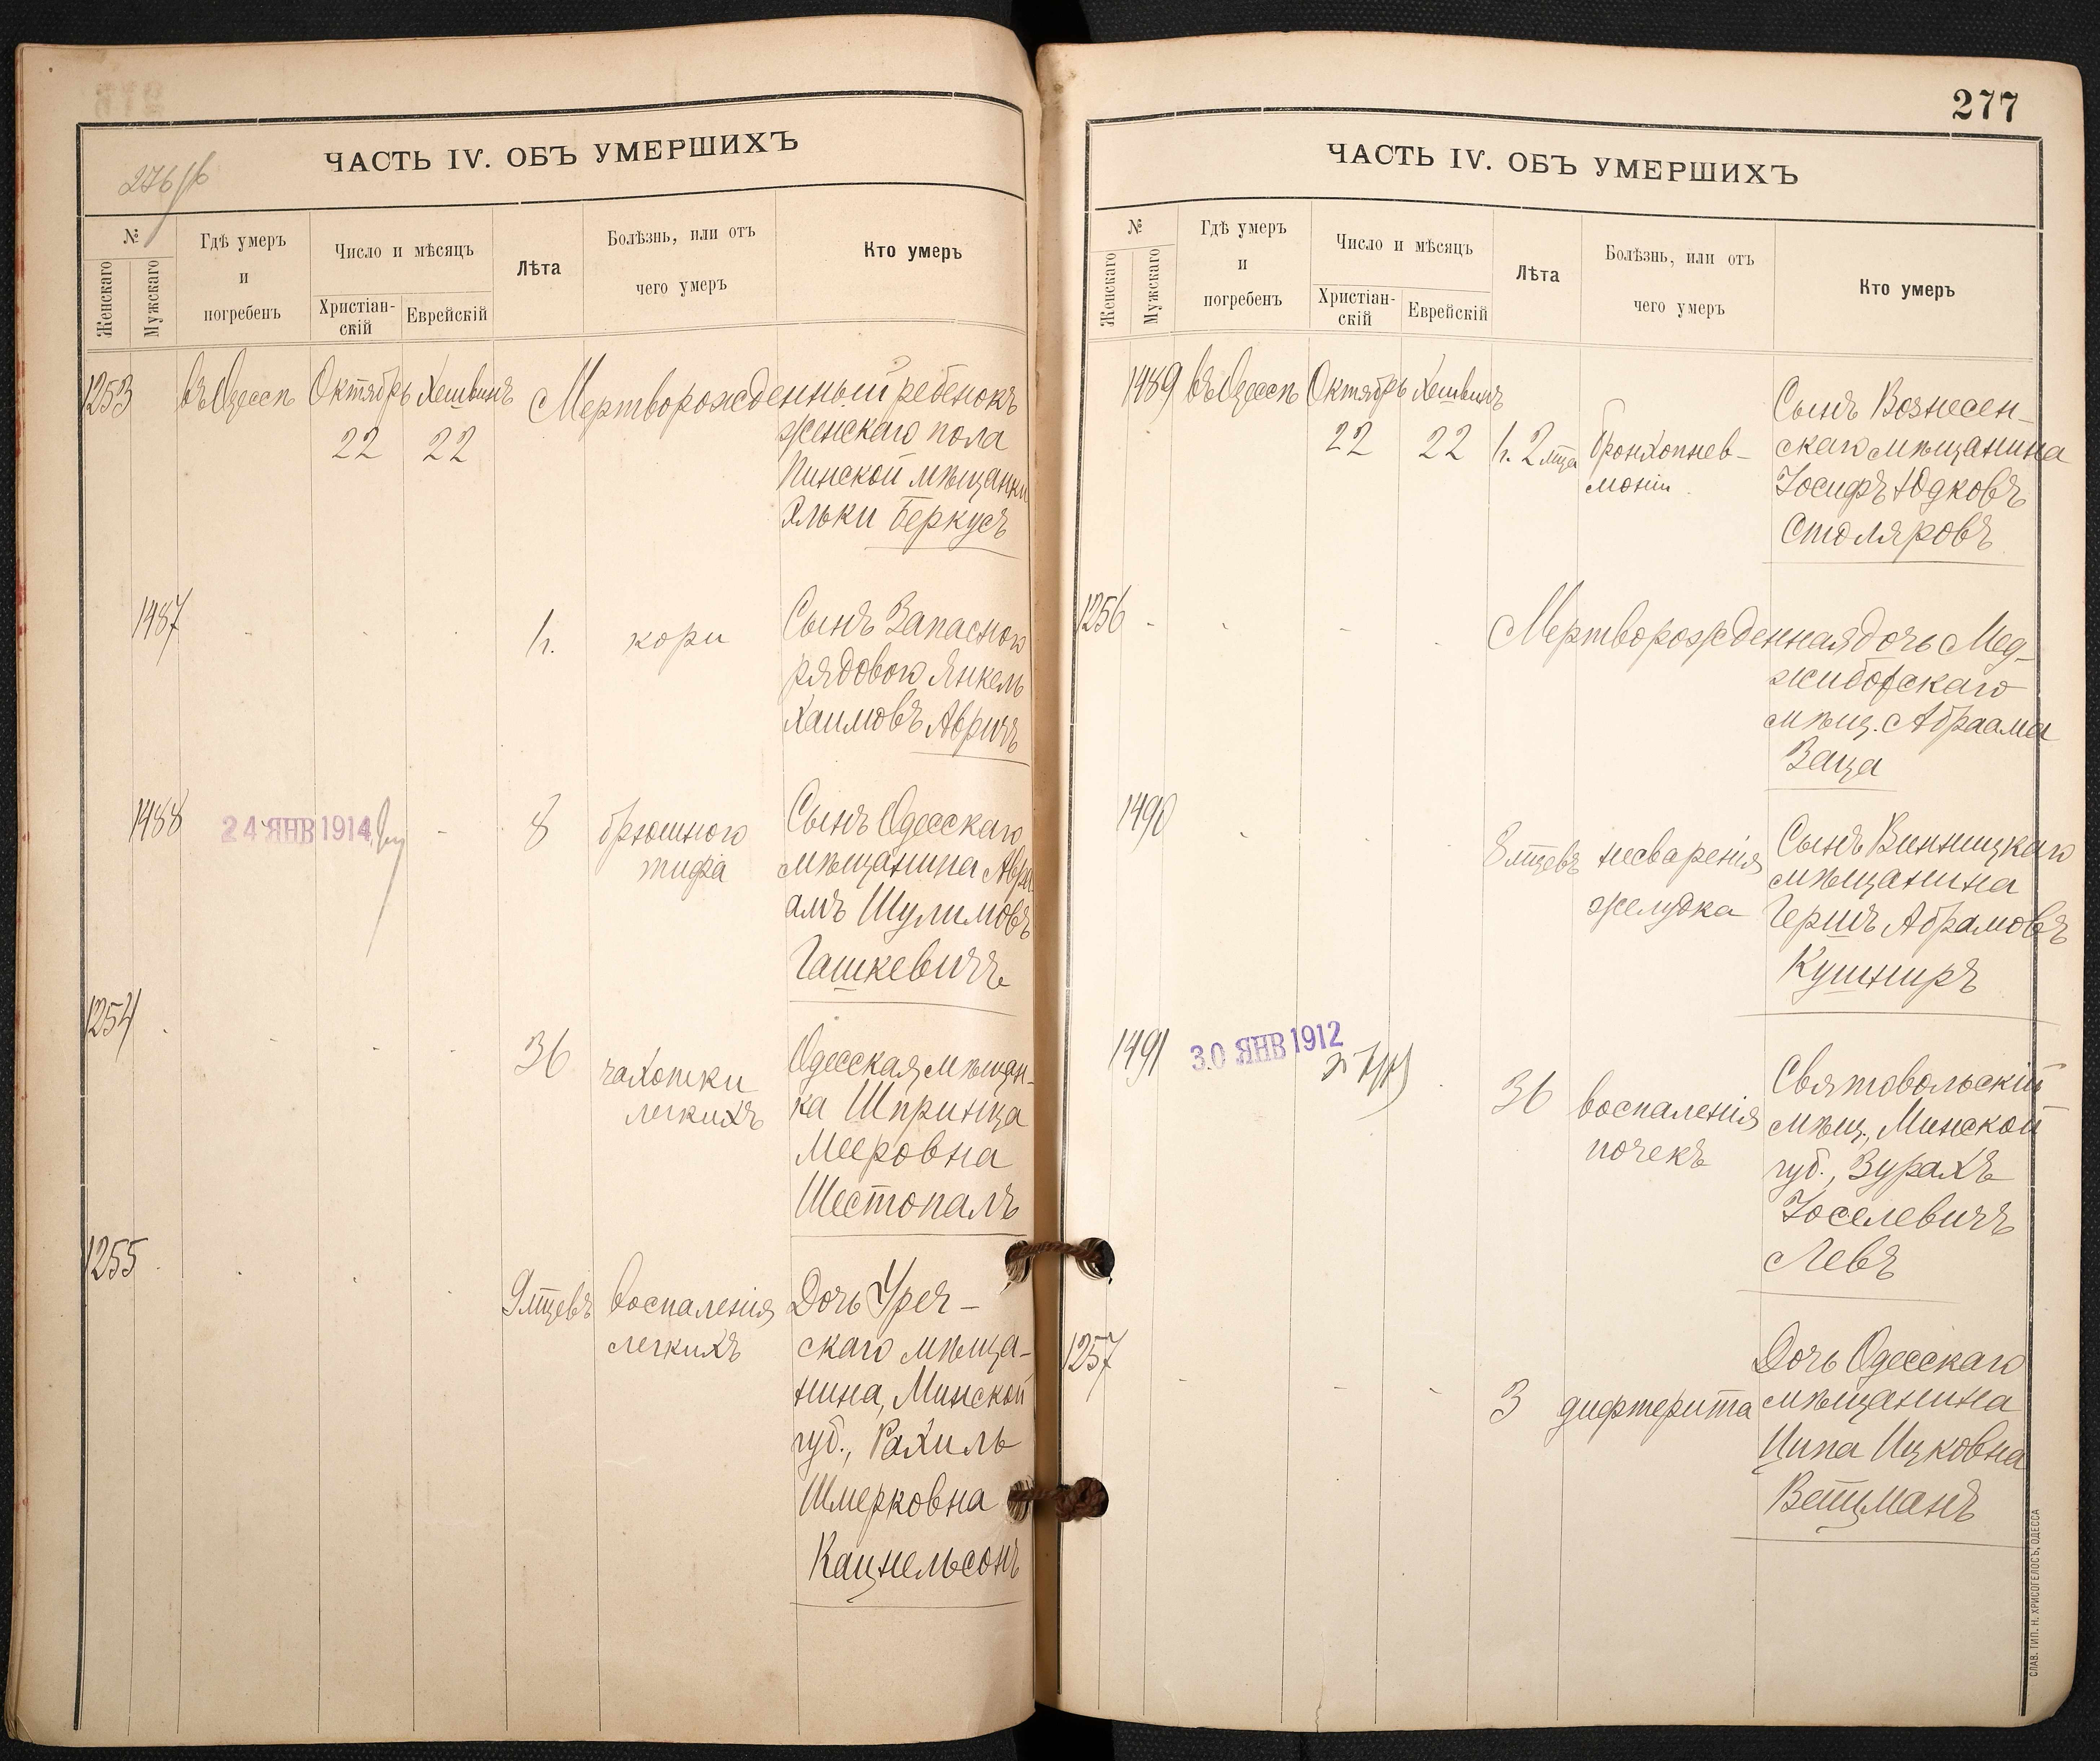 276/б
ЧАСТЬ IV. ОБЪ УМЕРШИХЪ
№
Женскаго
Мужскаго
Гдѣ умеръ
и
погребенъ
Число и мѣсяцъ
Христіан-
скій
Еврейскій
Лѣта
Болѣзнь, или отъ
чего умеръ
Кто умеръ
1253 въ Одессѣ Октябрь Хешвинъ Мертворожденный ребенокъ
22 22 женскаго пола
Пинской мѣщанки
Альки Беркусъ
1487 1 г. кори Сынъ Запасного
рядового Янкель
Хаимовъ Авричъ
1488 24 ЯНВ 1914 8 брюшного Сынъ Одесскаго
тифа мѣщанина Авра
амъ Шулимовъ
Гашкевичъ
1254 36 чахотки Одесская мѣщан-
легкихъ ка Шпринца
Мееровна
Шестопалъ
1255 9 мѣцевъ воспаленія Дочь Уреч-
легкихъ скаго мѣща-
нина, Минской
губ., Рахиль
Шмерковна
Кацнельсонъ
277
ЧАСТЬ IV. ОБЪ УМЕРШИХЪ
№
Женскаго
Мужскаго
Гдѣ умеръ
и
погребенъ
Число и мѣсяцъ
Христіан-
скій
Еврейскій
Лѣта
Болѣзнь, или отъ
чего умеръ
Кто умеръ
1489 въ Одессѣ Октябрь Хешвинъ Сынъ Вознесен-
22 22 1 г. 2 мца бронхопнев- скаго мѣщанина
моніи Іосифъ Юдковъ
Столяровъ
1256 Мертворожденная дочь Мед-
жиборскаго
мѣщ. Абраама
Ваца
1490 8 мѣцевъ несваренія Сынъ Винницкаго
желудка мѣщанина
Гершъ Абрамовъ
Кушниръ
1491 30 ЯНВ 1912 36 воспаленія Святовольскій
почекъ мѣщ., Минской
губ., Зурахъ
Іоселевичъ
Левъ
1257 3 дифтерита Дочь Одесскаго
мѣщанина
Ципа Ицковна
Вейцманъ
СЛАВ. ТИП. Н. ХРИСОГЕЛОСЪ, ОДЕССА